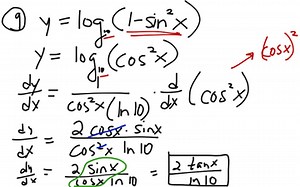 ⑨ y = log₁₀ (1-sin²x)
y = log₁₀ (cos²x) (cosx)²
dy/dx = 1/(cos²x (ln 10)) · d/dx (cos²x)
dy/dx = (2 cosx · sinx)/(cos²x ln 10)
dy/dx = (2 sinx)/(cosx ln 10) = (2 tanx)/(ln 10)